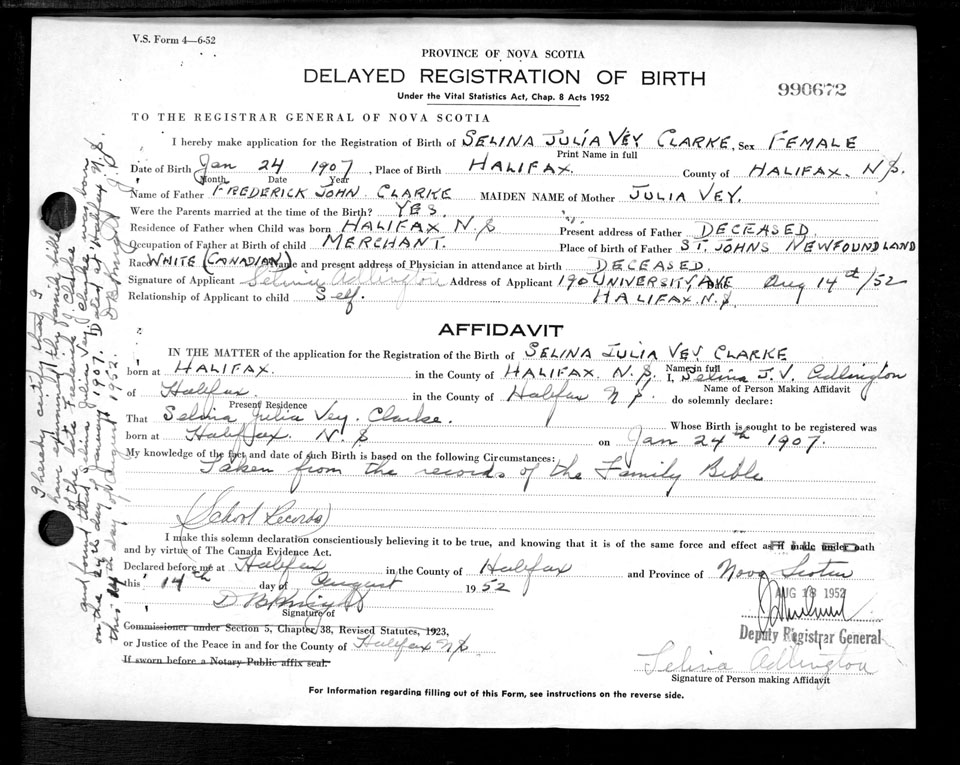 V.S. Form 4—6-52
PROVINCE OF NOVA SCOTIA
DELAYED REGISTRATION OF BIRTH
990672
Under the Vital Statistics Act, Chap. 8 Acts 1952
TO THE REGISTRAR GENERAL OF NOVA SCOTIA
I hereby make application for the Registration of Birth of SELINA JULIA VEY CLARKE, Sex FEMALE
Print Name in full
Date of Birth Jan 24 1907, Place of Birth HALIFAX. County of HALIFAX. N.S.
Month Date Year
Name of Father FREDERICK JOHN CLARKE MAIDEN NAME of Mother JULIA VEY.
Were the Parents married at the time of the Birth? YES.
Residence of Father when Child was born HALIFAX N.S Present address of Father DECEASED.
Occupation of Father at Birth of child MERCHANT. Place of birth of Father ST. JOHNS NEWFOUNDLAND
Race WHITE (CANADIAN) Name and present address of Physician in attendance at birth DECEASED.
Signature of Applicant Selina Adlington Address of Applicant 190 UNIVERSITY AVE Aug 14th/52
Relationship of Applicant to child Self. HALIFAX. N.S.
AFFIDAVIT
IN THE MATTER of the application for the Registration of the Birth of SELINA JULIA VEY CLARKE
Name in full
born at HALIFAX. in the County of HALIFAX. N.S. I, Selina J. V. Adlington
Name of Person Making Affidavit
of Halifax. in the County of Halifax N.S. do solemnly declare:
Present Residence
That Selina Julia Vey. Clarke. Whose Birth is sought to be registered was
born at Halifax. N.S on Jan 24th 1907.
My knowledge of the fact and date of such Birth is based on the following Circumstances:
Taken from the records of the Family Bible
(School Records)
I make this solemn declaration conscientiously believing it to be true, and knowing that it is of the same force and effect as if made under oath
and by virtue of The Canada Evidence Act.
Declared before me at Halifax in the County of Halifax and Province of Nova Scotia
this 14th day of August 1952
AUG 18 1952
Signature of
Deputy Registrar General
Commissioner under Section 5, Chapter 38, Revised Statutes, 1923,
or Justice of the Peace in and for the County of Halifax N.S
If sworn before a Notary Public affix seal.
Selina Adlington
Signature of Person making Affidavit
For Information regarding filling out of this Form, see instructions on the reverse side.
I hereby certify that I
have examined the family bible
of the late Frederick J. Clarke
and found that Selina Julia Vey Clarke was born
on the 24th day of January 1907. Dated at Halifax N.S.
this 14th day of August 1952.